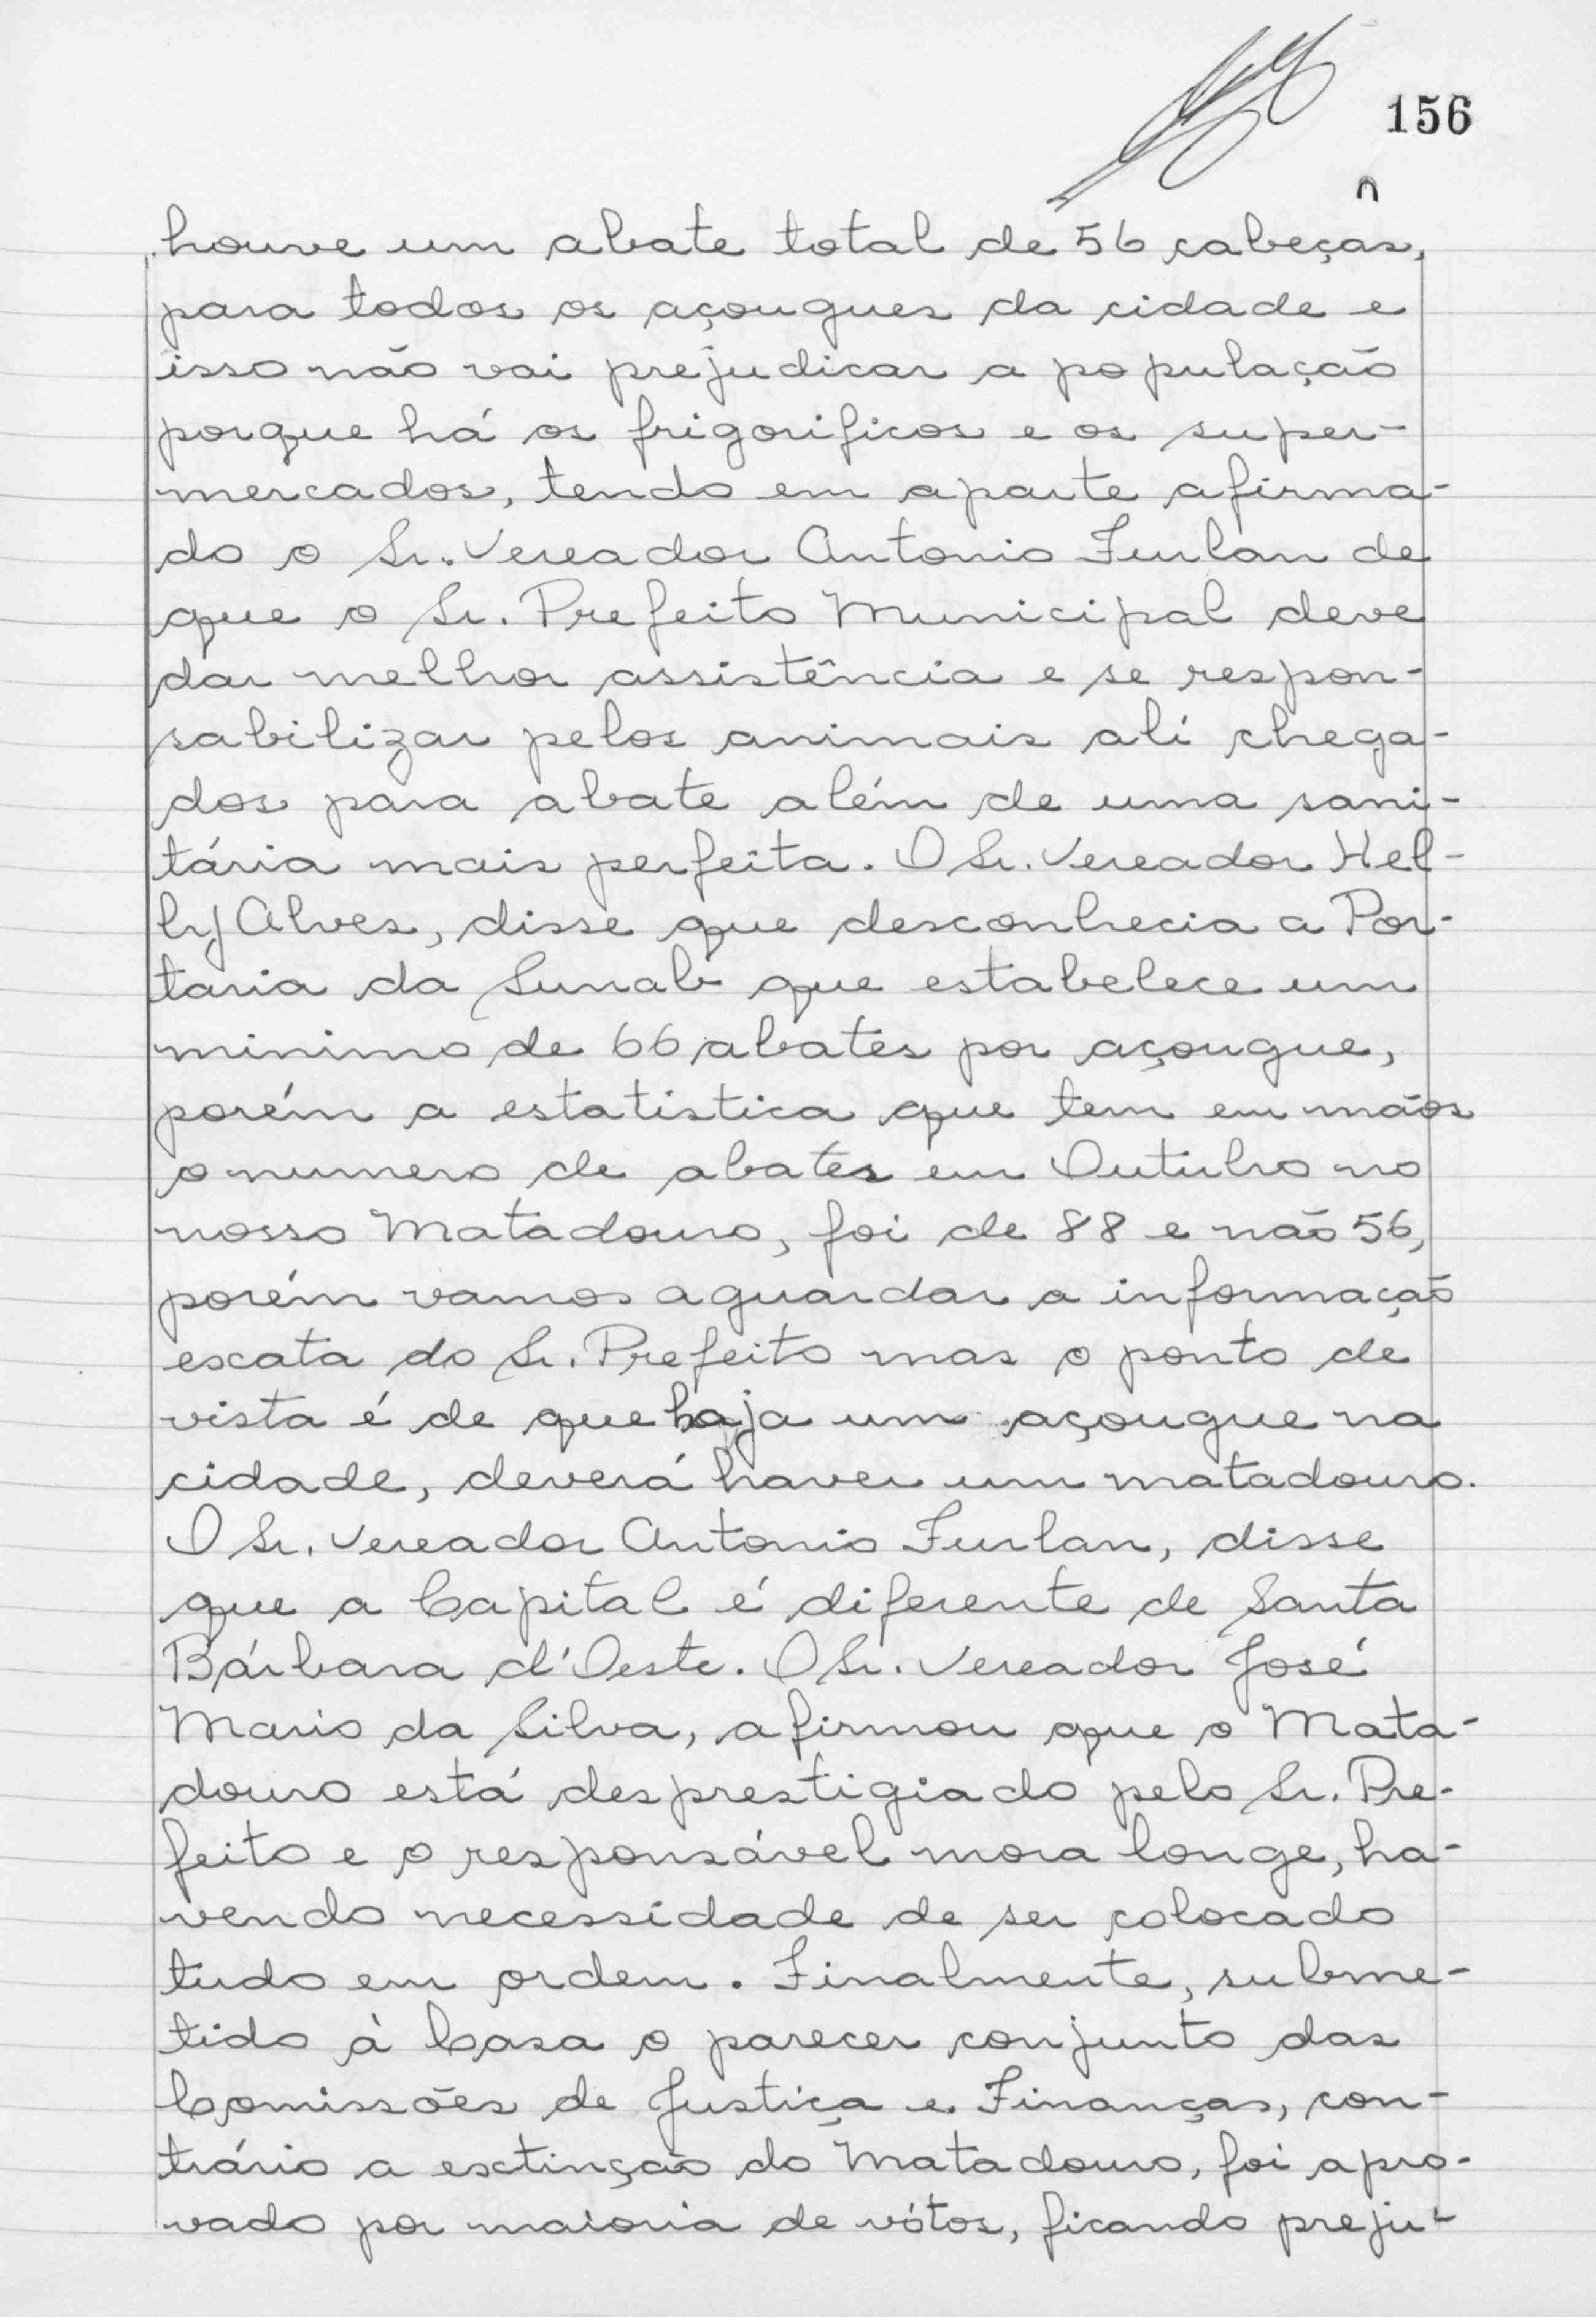 156
houve um abate total de 56 cabeças,
para todos os açougues da cidade e
isso não vai prejudicar a população
porque há os frigorificos e os super-
mercados, tendo em aparte afirma-
do o Sr. Vereador Antonio Furlan de
que o Sr. Prefeito Municipal deve
dar melhor assistência e se respon-
sabilizar pelos animais alí chega-
dos para abate além de uma sani-
tária mais perfeita. O Sr. Vereador Hel-
ly Alves, disse que desconhecia a Por-
taria da Sunab que estabelece um
minimo de 66 abates por açougue,
porém a estatistica que tem em mãos
o numero de abates em Outubro no
nosso Matadouro, foi de 88 e não 56,
porém vamos aguardar a informação
exata do Sr. Prefeito mas o ponto de
vista é de que haja um açougue na
cidade, deverá haver um matadouro.
O Sr. Vereador Antonio Furlan, disse
que a Capital é diferente de Santa
Bárbara d'Oeste. O Sr. Vereador José
Mario da Silva, afirmou que o Mata-
douro está desprestigiado pelo Sr. Pre-
feito e o responsável mora longe, ha-
vendo necessidade de ser colocado
tudo em ordem. Finalmente, subme-
tido à Casa o parecer conjunto das
Comissões de Justiça e Finanças, con-
trário a extinção do Matadouro, foi apro-
vado por maioria de vótos, ficando preju-